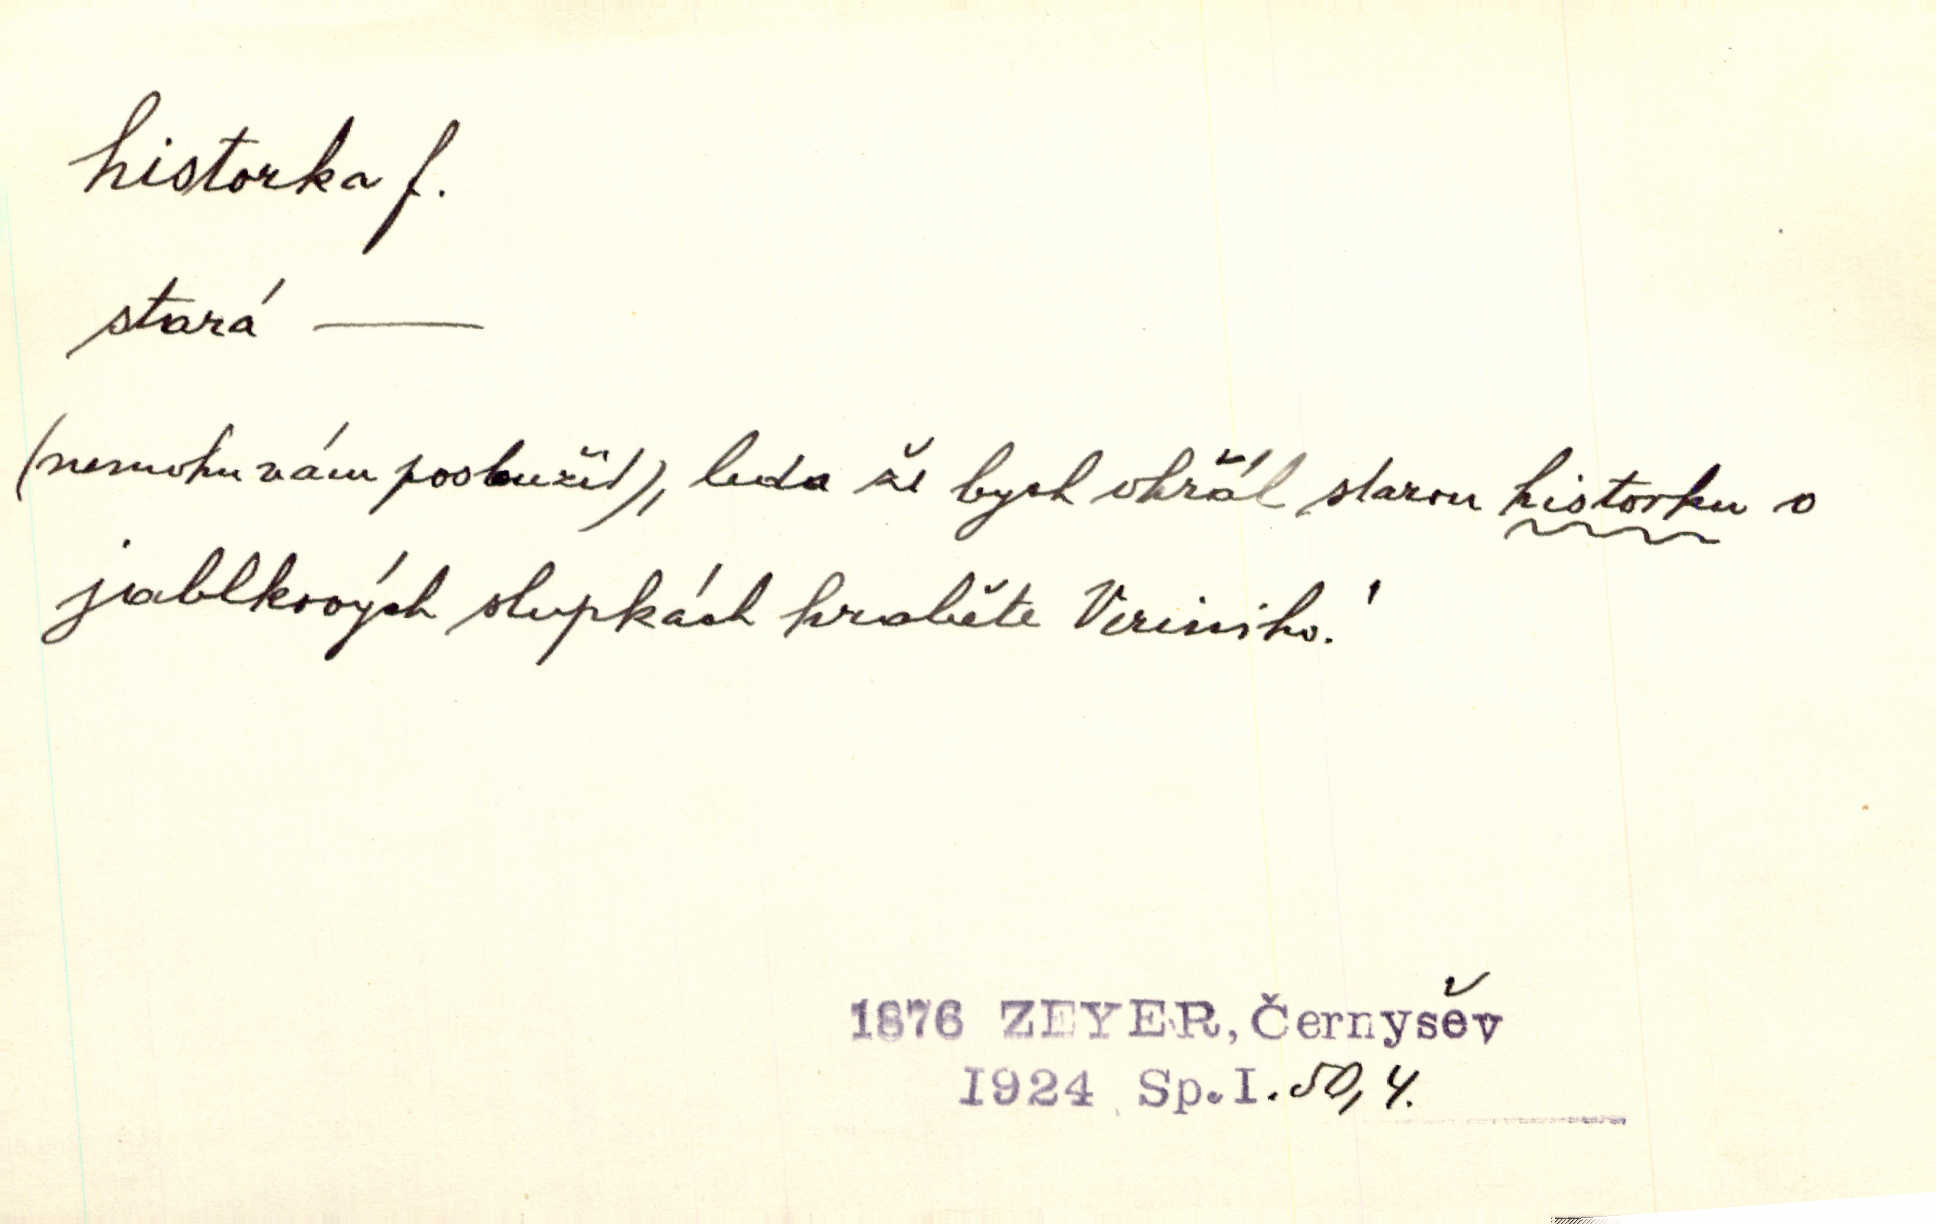 historka f.
stará —
(nemohu vám posloužit), leda že bych ohřál starou historku o
jablkových slupkách hraběte Veriniho.'
1876 ZEYER, Černyšěv
1924 Sp.I. 50, 4.